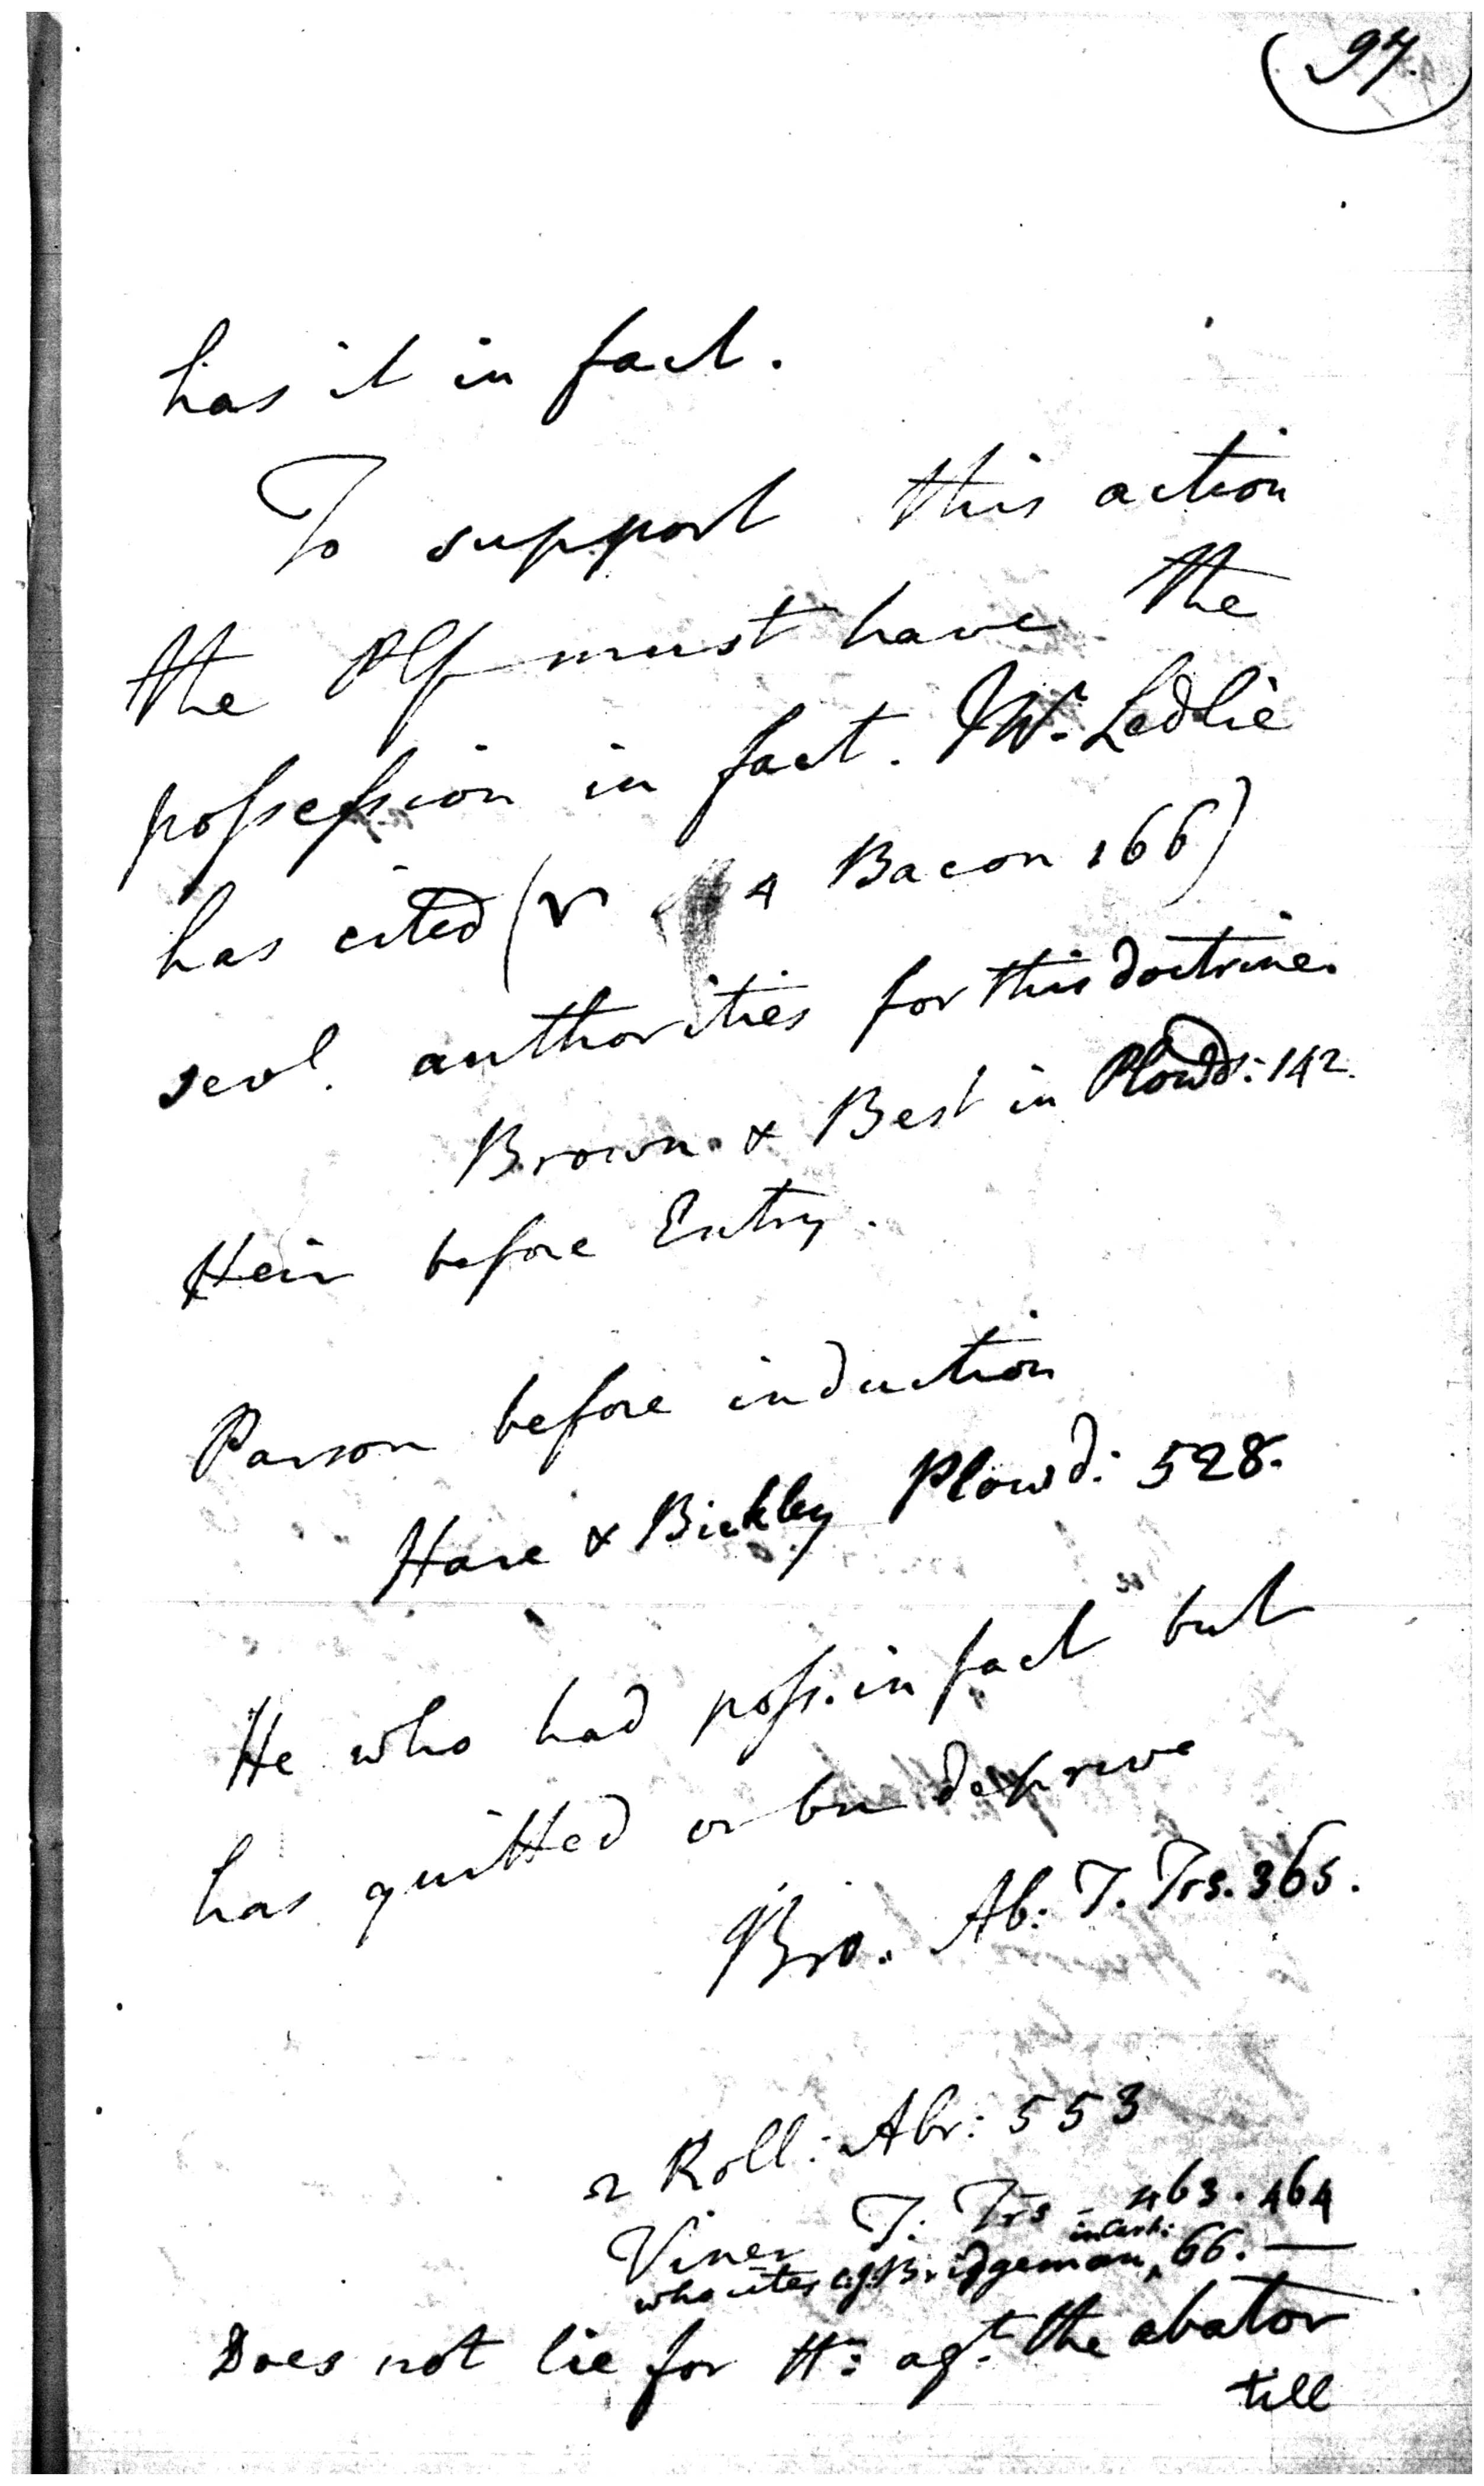 97.
has it in fact.
To support this action
the Plf must have the
possession in fact. Mr. Ledlie
has cited (v 4 Bacon 166)
sevl. authorities for this doctrine.
Brown & Best in Plowd: 142.
Heir before Entry.
Parson before induction
Hare & Bickley Plowd: 528.
He who had poss. in fact but
has quitted or bn deprive
Bro. Ab: T. Trs. 365.
2 Roll: Abr: 553
Viner T. Trs - 463. 464
who cites Bridgeman 66. —
Does not lie for H: agt. the abator
till